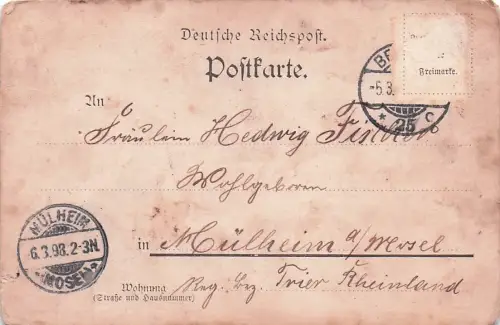 Deutsche Reichspost.
Postkarte.
Freimarke.
BE
-5.3.
* 25 c
An
Fräulein Hedwig
Wohlgeboren
MÜLHEIM
6.3.98.2-3N.
(MOSEL)
in Mülheim a/Mosel
Wohnung
(Straße und Hausnummer)
Reg. Bez. Trier Rheinland